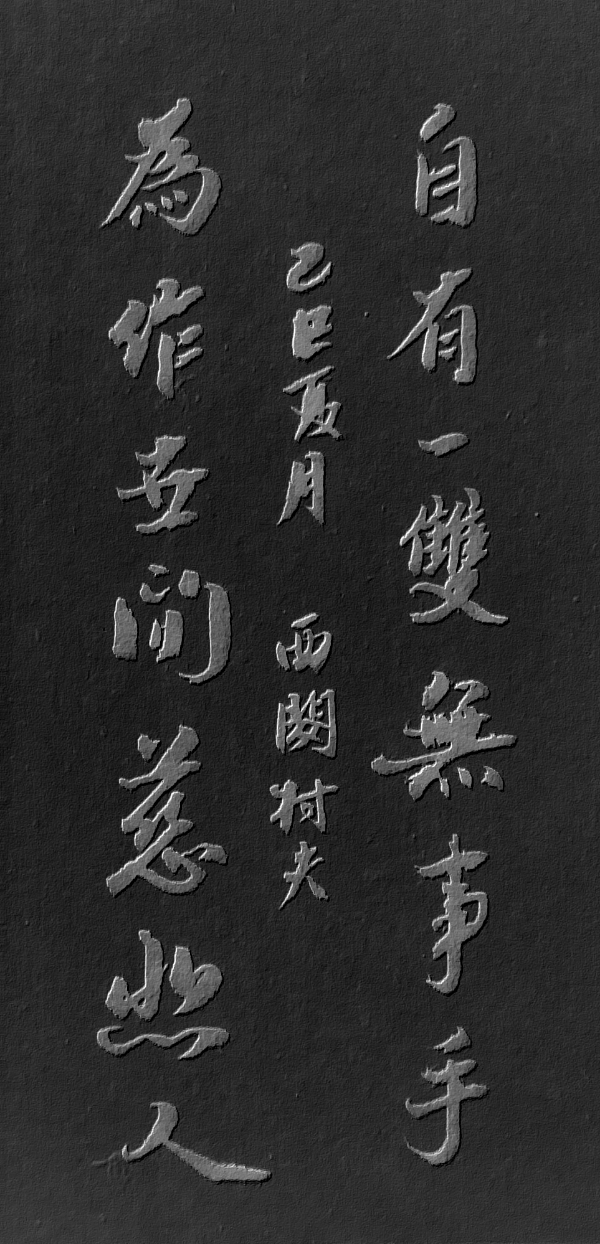 自有一雙無事手
乙巳夏月 西關村夫
為作世間慈悲人